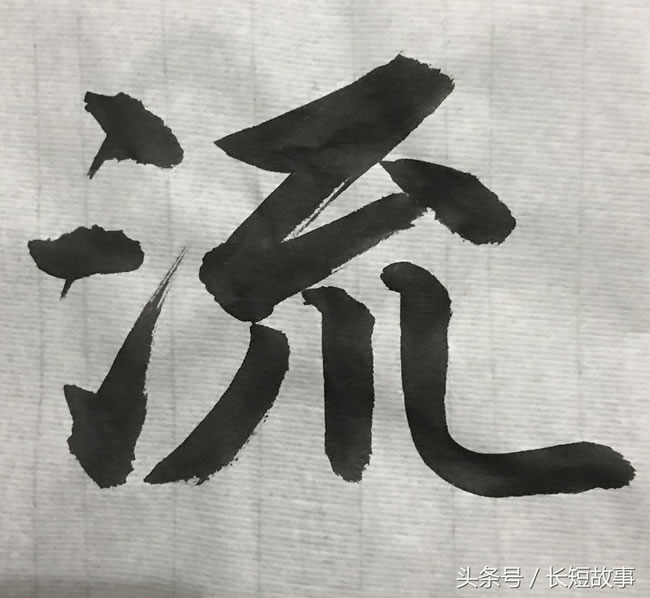 流
头条号/长短故事